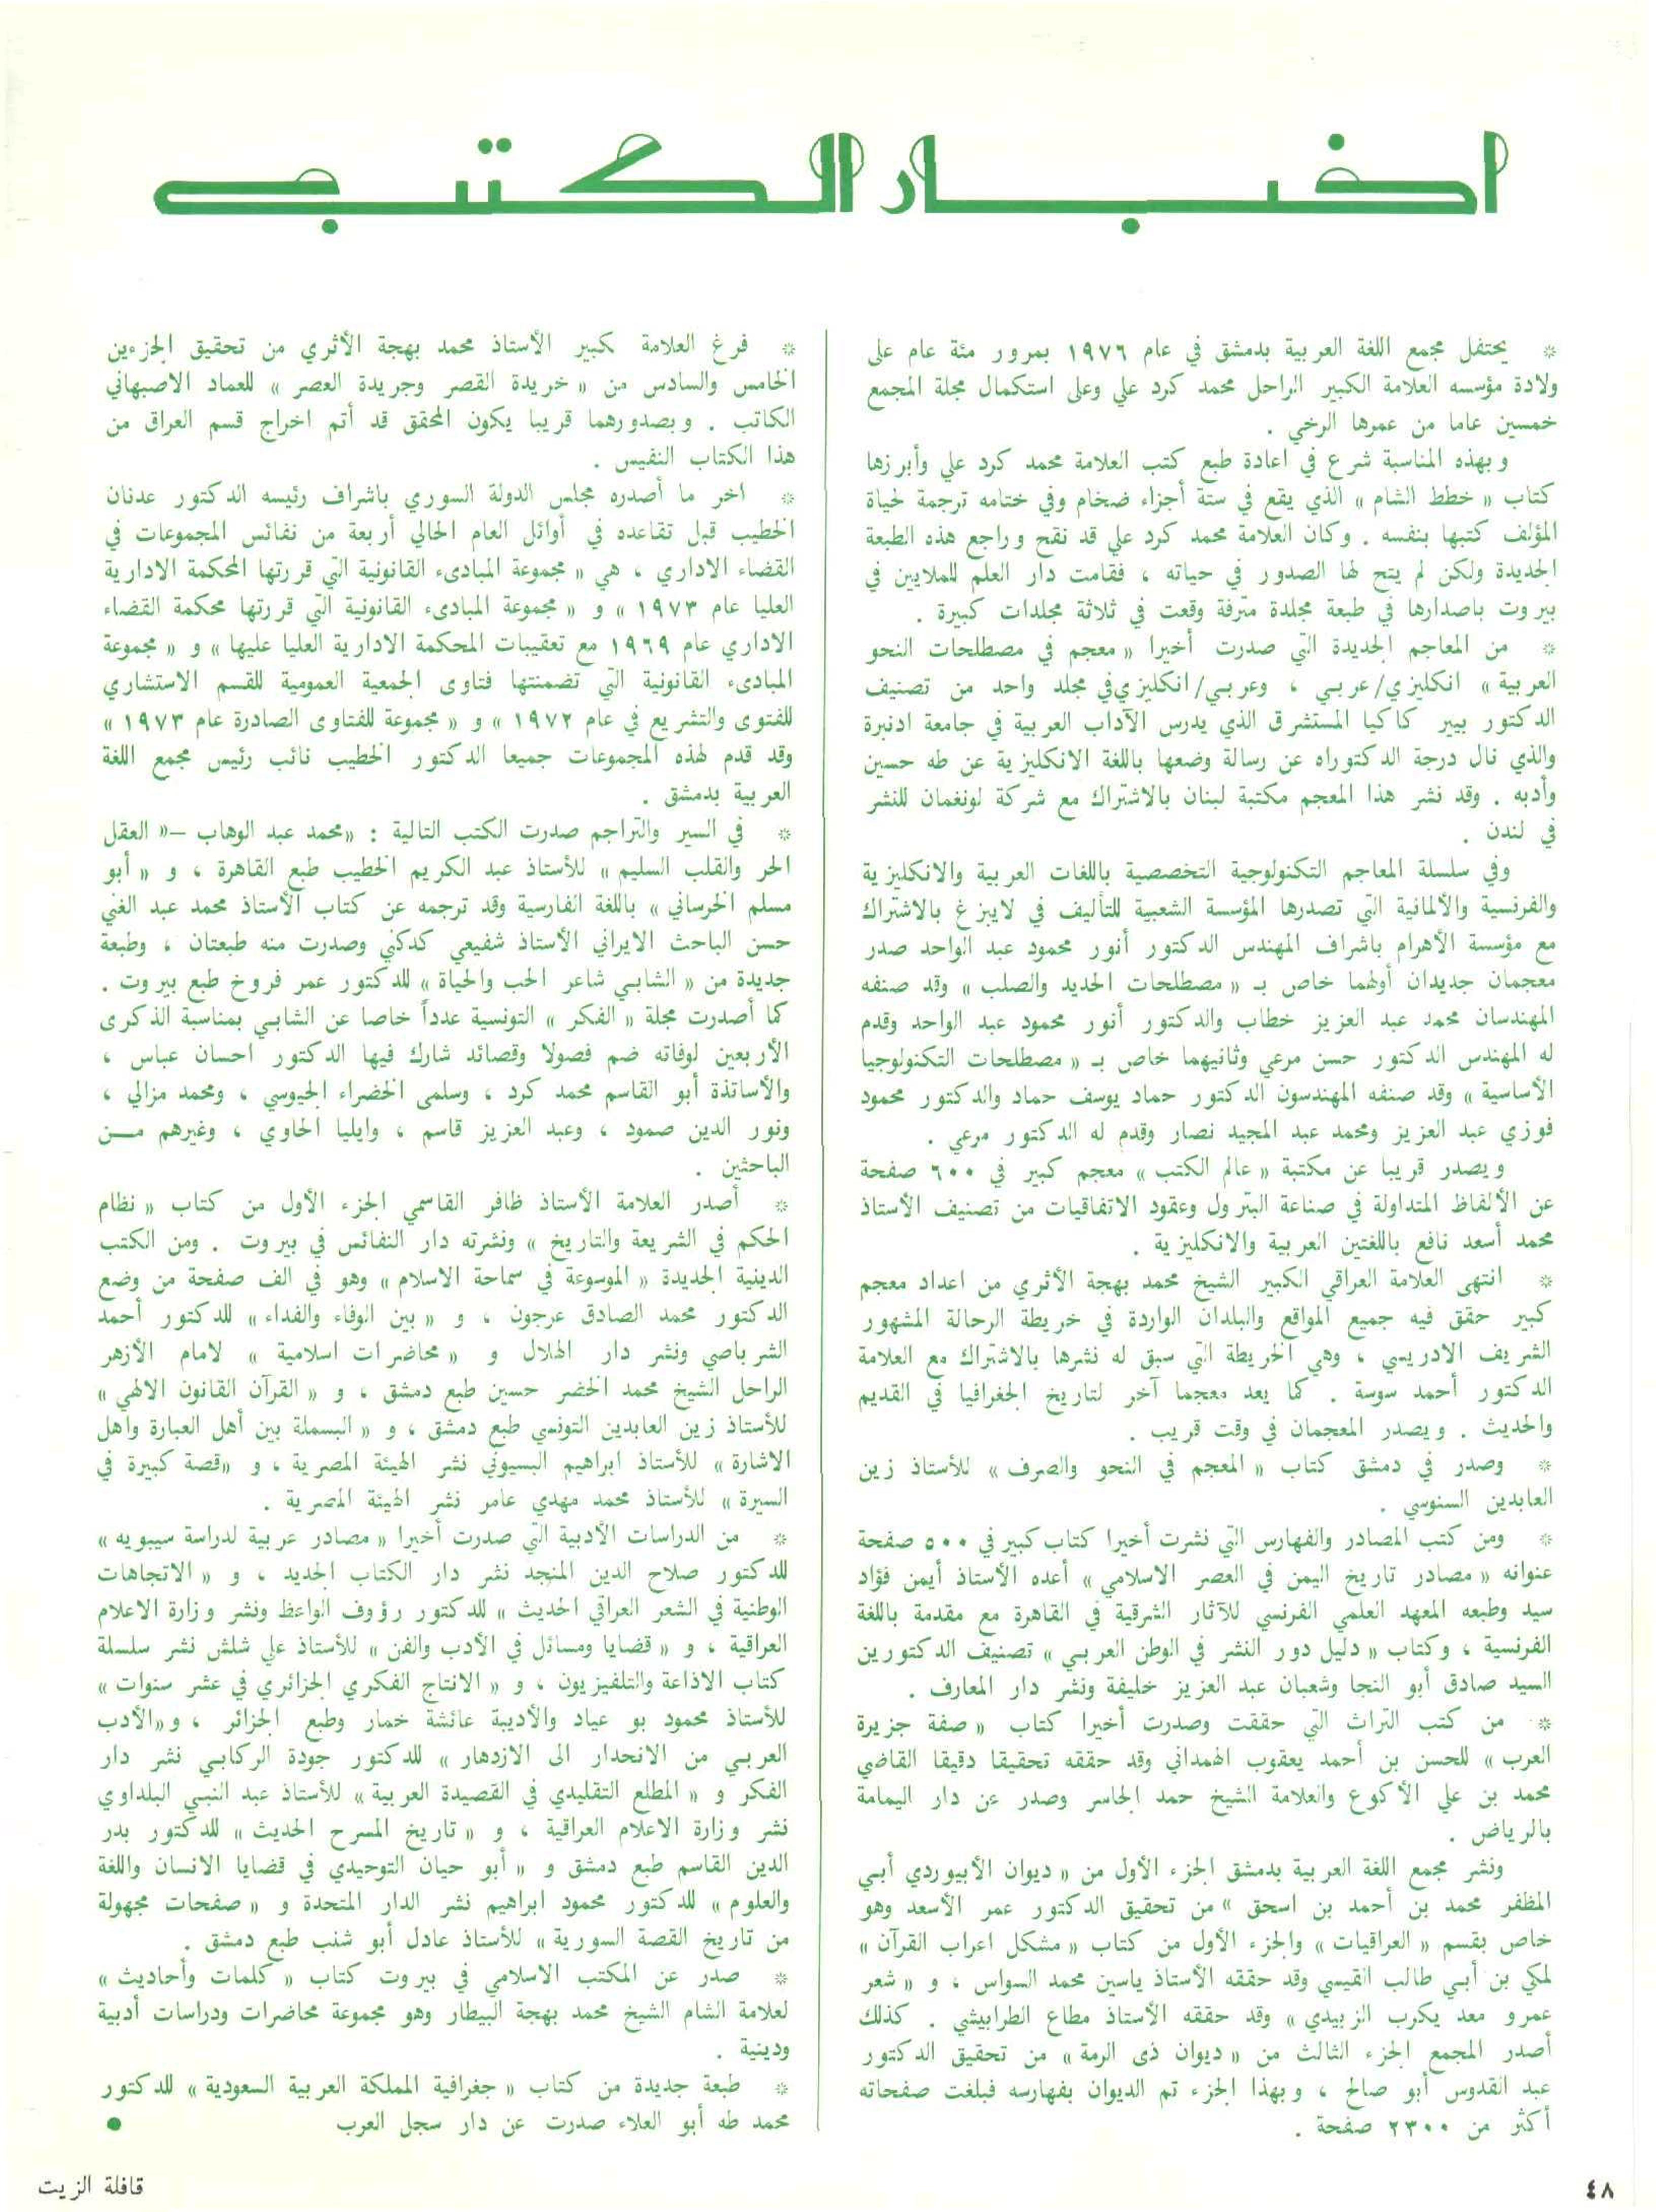 اخبار الكتب
* يحتفل مجمع اللغة العربية بدمشق في عام ١٩٧٦ بمرور مئة عام على
ولادة مؤسسه العلامة الكبير الراحل محمد كرد علي وعلى استكمال مجلة المجمع
خمسين عاما من عمرها الرخي .
وبهذه المناسبة شرع في اعادة طبع كتب العلامة محمد كرد علي وأبرزها
كتاب « خطط الشام » الذي يقع في ستة أجزاء ضخام وفي ختامه ترجمة لحياة
المؤلف كتبها بنفسه . وكان العلامة محمد كرد علي قد نقح وراجع هذه الطبعة
الجديدة ولكن لم يتح لها الصدور في حياته ، فقامت دار العلم للملايين في
بيروت باصدارها في طبعة مجلدة مترفة وقعت في ثلاثة مجلدات كبيرة .
* من المعاجم الجديدة التي صدرت أخيرا « معجم في مصطلحات النحو
العربية » انكليزي/عربي ، وعربي/انكليزي في مجلد واحد من تصنيف
الدكتور بيير كاكيا المستشرق الذي يدرس الآداب العربية في جامعة ادنبرة
والذي نال درجة الدكتوراه عن رسالة وضعها باللغة الانكليزية عن طه حسين
وأدبه . وقد نشر هذا المعجم مكتبة لبنان بالاشتراك مع شركة لونغمان للنشر
في لندن .
وفي سلسلة المعاجم التكنولوجية التخصصية باللغات العربية والانكليزية
والفرنسية والألمانية التي تصدرها المؤسسة الشعبية للتأليف في لايبزغ بالاشتراك
مع مؤسسة الأهرام باشراف المهندس الدكتور أنور محمود عبد الواحد صدر
معجمان جديدان أولهما خاص بـ « مصطلحات الحديد والصلب » وقد صنفه
المهندسان محمد عبد العزيز خطاب والدكتور أنور محمود عبد الواحد وقدم
له المهندس الدكتور حسن مرعي وثانيهما خاص بـ « مصطلحات التكنولوجيا
الأساسية » وقد صنفه المهندسون الدكتور حماد يوسف حماد والدكتور محمود
فوزي عبد العزيز ومحمد عبد المجيد نصار وقدم له الدكتور مرعي .
ويصدر قريبا عن مكتبة « عالم الكتب » معجم كبير في ٦٠٠ صفحة
عن الألفاظ المتداولة في صناعة البترول وعقود الاتفاقيات من تصنيف الأستاذ
محمد أسعد نافع باللغتين العربية والانكليزية .
* انتهى العلامة العراقي الكبير الشيخ محمد بهجة الأثري من اعداد معجم
كبير حقق فيه جميع المواقع والبلدان الواردة في خريطة الرحالة المشهور
الشريف الادريسي ، وهي الخريطة التي سبق له نشرها بالاشتراك مع العلامة
الدكتور أحمد سوسة . كما يعد معجما آخر لتاريخ الجغرافيا في القديم
والحديث . ويصدر المعجمان في وقت قريب .
* وصدر في دمشق كتاب « المعجم في النحو والصرف » للأستاذ زين
العابدين السنوسي .
* ومن كتب المصادر والفهارس التي نشرت أخيرا كتاب كبير في ٥٠٠ صفحة
عنوانه « مصادر تاريخ اليمن في العصر الاسلامي » أعده الأستاذ أيمن فؤاد
سيد وطبعه المعهد العلمي الفرنسي للآثار الشرقية في القاهرة مع مقدمة باللغة
الفرنسية ، وكتاب « دليل دور النشر في الوطن العربي » تصنيف الدكتورين
السيد صادق أبو النجا وشعبان عبد العزيز خليفة ونشر دار المعارف .
* من كتب التراث التي حققت وصدرت أخيرا كتاب « صفة جزيرة
العرب » للحسن بن أحمد يعقوب الهمداني وقد حققه تحقيقا دقيقا القاضي
محمد بن علي الأكوع والعلامة الشيخ حمد الجاسر وصدر عن دار اليمامة
بالرياض .
ونشر مجمع اللغة العربية بدمشق الجزء الأول من « ديوان الأبيوردي أبي
المظفر محمد بن أحمد بن اسحق » من تحقيق الدكتور عمر الأسعد وهو
خاص بقسم « العراقيات » والجزء الأول من كتاب « مشكل اعراب القرآن »
لمكي بن أبي طالب القيسي وقد حققه الأستاذ ياسين محمد السواس ، و « شعر
عمرو معد يكرب الزبيدي » وقد حققه الأستاذ مطاع الطرابيشي . كذلك
أصدر المجمع الجزء الثالث من « ديوان ذي الرمة » من تحقيق الدكتور
عبد القدوس أبو صالح ، وبهذا الجزء تم الديوان بفهارسه فبلغت صفحاته
أكثر من ٢٣٠٠ صفحة .
* فرغ العلامة كبير الأستاذ محمد بهجة الأثري من تحقيق الجزءين
الخامس والسادس من « خريدة القصر وجريدة العصر » للعماد الاصبهاني
الكاتب . وبصدورهما قريبا يكون المحقق قد أتم اخراج قسم العراق من
هذا الكتاب النفيس .
* اخر ما أصدره مجلس الدولة السوري باشراف رئيسه الدكتور عدنان
الخطيب قبل تقاعده في أوائل العام الحالي أربعة من نفائس المجموعات في
القضاء الاداري ، هي « مجموعة المبادىء القانونية التي قررتها المحكمة الادارية
العليا عام ١٩٧٣ » و « مجموعة المبادىء القانونية التي قررتها محكمة القضاء
الاداري عام ١٩٦٩ مع تعقيبات المحكمة الادارية العليا عليها » و « مجموعة
المبادىء القانونية التي تضمنتها فتاوى الجمعية العمومية للقسم الاستشاري
للفتوى والتشريع في عام ١٩٧٢ » و « مجموعة للفتاوى الصادرة عام ١٩٧٣ »
وقد قدم لهذه المجموعات جميعا الدكتور الخطيب نائب رئيس مجمع اللغة
العربية بدمشق .
* في السير والتراجم صدرت الكتب التالية : «محمد عبد الوهاب –« العقل
الحر والقلب السليم » للأستاذ عبد الكريم الخطيب طبع القاهرة ، و « أبو
مسلم الخرساني » باللغة الفارسية وقد ترجمه عن كتاب الأستاذ محمد عبد الغني
حسن الباحث الايراني الأستاذ شفيعي كدكني وصدرت منه طبعتان ، وطبعة
جديدة من « الشابي شاعر الحب والحياة » للدكتور عمر فروخ طبع بيروت .
كما أصدرت مجلة « الفكر » التونسية عدداً خاصا عن الشابي بمناسبة الذكرى
الأربعين لوفاته ضم فصولا وقصائد شارك فيها الدكتور احسان عباس ،
والأساتذة أبو القاسم محمد كرد ، وسلمى الخضراء الجيوسي ، ومحمد مزالي ،
ونور الدين صمود ، وعبد العزيز قاسم ، وايليا الحاوي ، وغيرهم مــن
الباحثين .
* أصدر العلامة الأستاذ ظافر القاسمي الجزء الأول من كتاب « نظام
الحكم في الشريعة والتاريخ » ونشرته دار النفائس في بيروت . ومن الكتب
الدينية الجديدة « الموسوعة في سماحة الاسلام » وهو في الف صفحة من وضع
الدكتور محمد الصادق عرجون ، و « بين الوفاء والفداء » للدكتور أحمد
الشرباصي ونشر دار الهلال و « محاضرات اسلامية » لامام الأزهر
الراحل الشيخ محمد الخضر حسين طبع دمشق ، و « القرآن القانون الالهي »
للأستاذ زين العابدين التونسي طبع دمشق ، و « البسملة بين أهل العبارة واهل
الاشارة » للأستاذ ابراهيم البسيوني نشر الهيئة المصرية ، و «قصة كبيرة في
السيرة » للأستاذ محمد مهدي عامر نشر الهيئة المصرية .
* من الدراسات الأدبية التي صدرت أخيرا « مصادر عربية لدراسة سيبويه »
للدكتور صلاح الدين المنجد نشر دار الكتاب الجديد ، و « الاتجاهات
الوطنية في الشعر العراقي الحديث » للدكتور رؤوف الواعظ ونشر وزارة الاعلام
العراقية ، و « قضايا ومسائل في الأدب والفن » للأستاذ علي شلش نشر سلسلة
كتاب الاذاعة والتلفيزيون ، و « الانتاج الفكري الجزائري في عشر سنوات »
للأستاذ محمود بو عياد والأديبة عائشة خمار وطبع الجزائر ، و«الأدب
العربي من الانحدار الى الازدهار » للدكتور جودة الركابي نشر دار
الفكر و « المطلع التقليدي في القصيدة العربية » للأستاذ عبد النبي البلداوي
نشر وزارة الاعلام العراقية ، و « تاريخ المسرح الحديث » للدكتور بدر
الدين القاسم طبع دمشق و « أبو حيان التوحيدي في قضايا الانسان واللغة
والعلوم » للدكتور محمود ابراهيم نشر الدار المتحدة و « صفحات مجهولة
من تاريخ القصة السورية » للأستاذ عادل أبو شنب طبع دمشق .
* صدر عن المكتب الاسلامي في بيروت كتاب « كلمات وأحاديث »
لعلامة الشام الشيخ محمد بهجة البيطار وهو مجموعة محاضرات ودراسات أدبية
ودينية .
* طبعة جديدة من كتاب « جغرافية المملكة العربية السعودية » للدكتور
محمد طه أبو العلاء صدرت عن دار سجل العرب ●
٤٨
قافلة الزيت